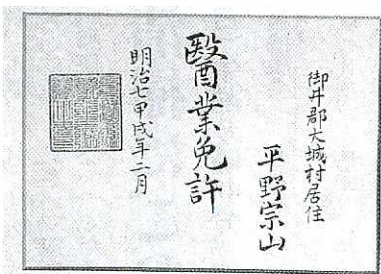 御井郡大城村居住
平野宗山
醫業免許
明治七甲戌年二月